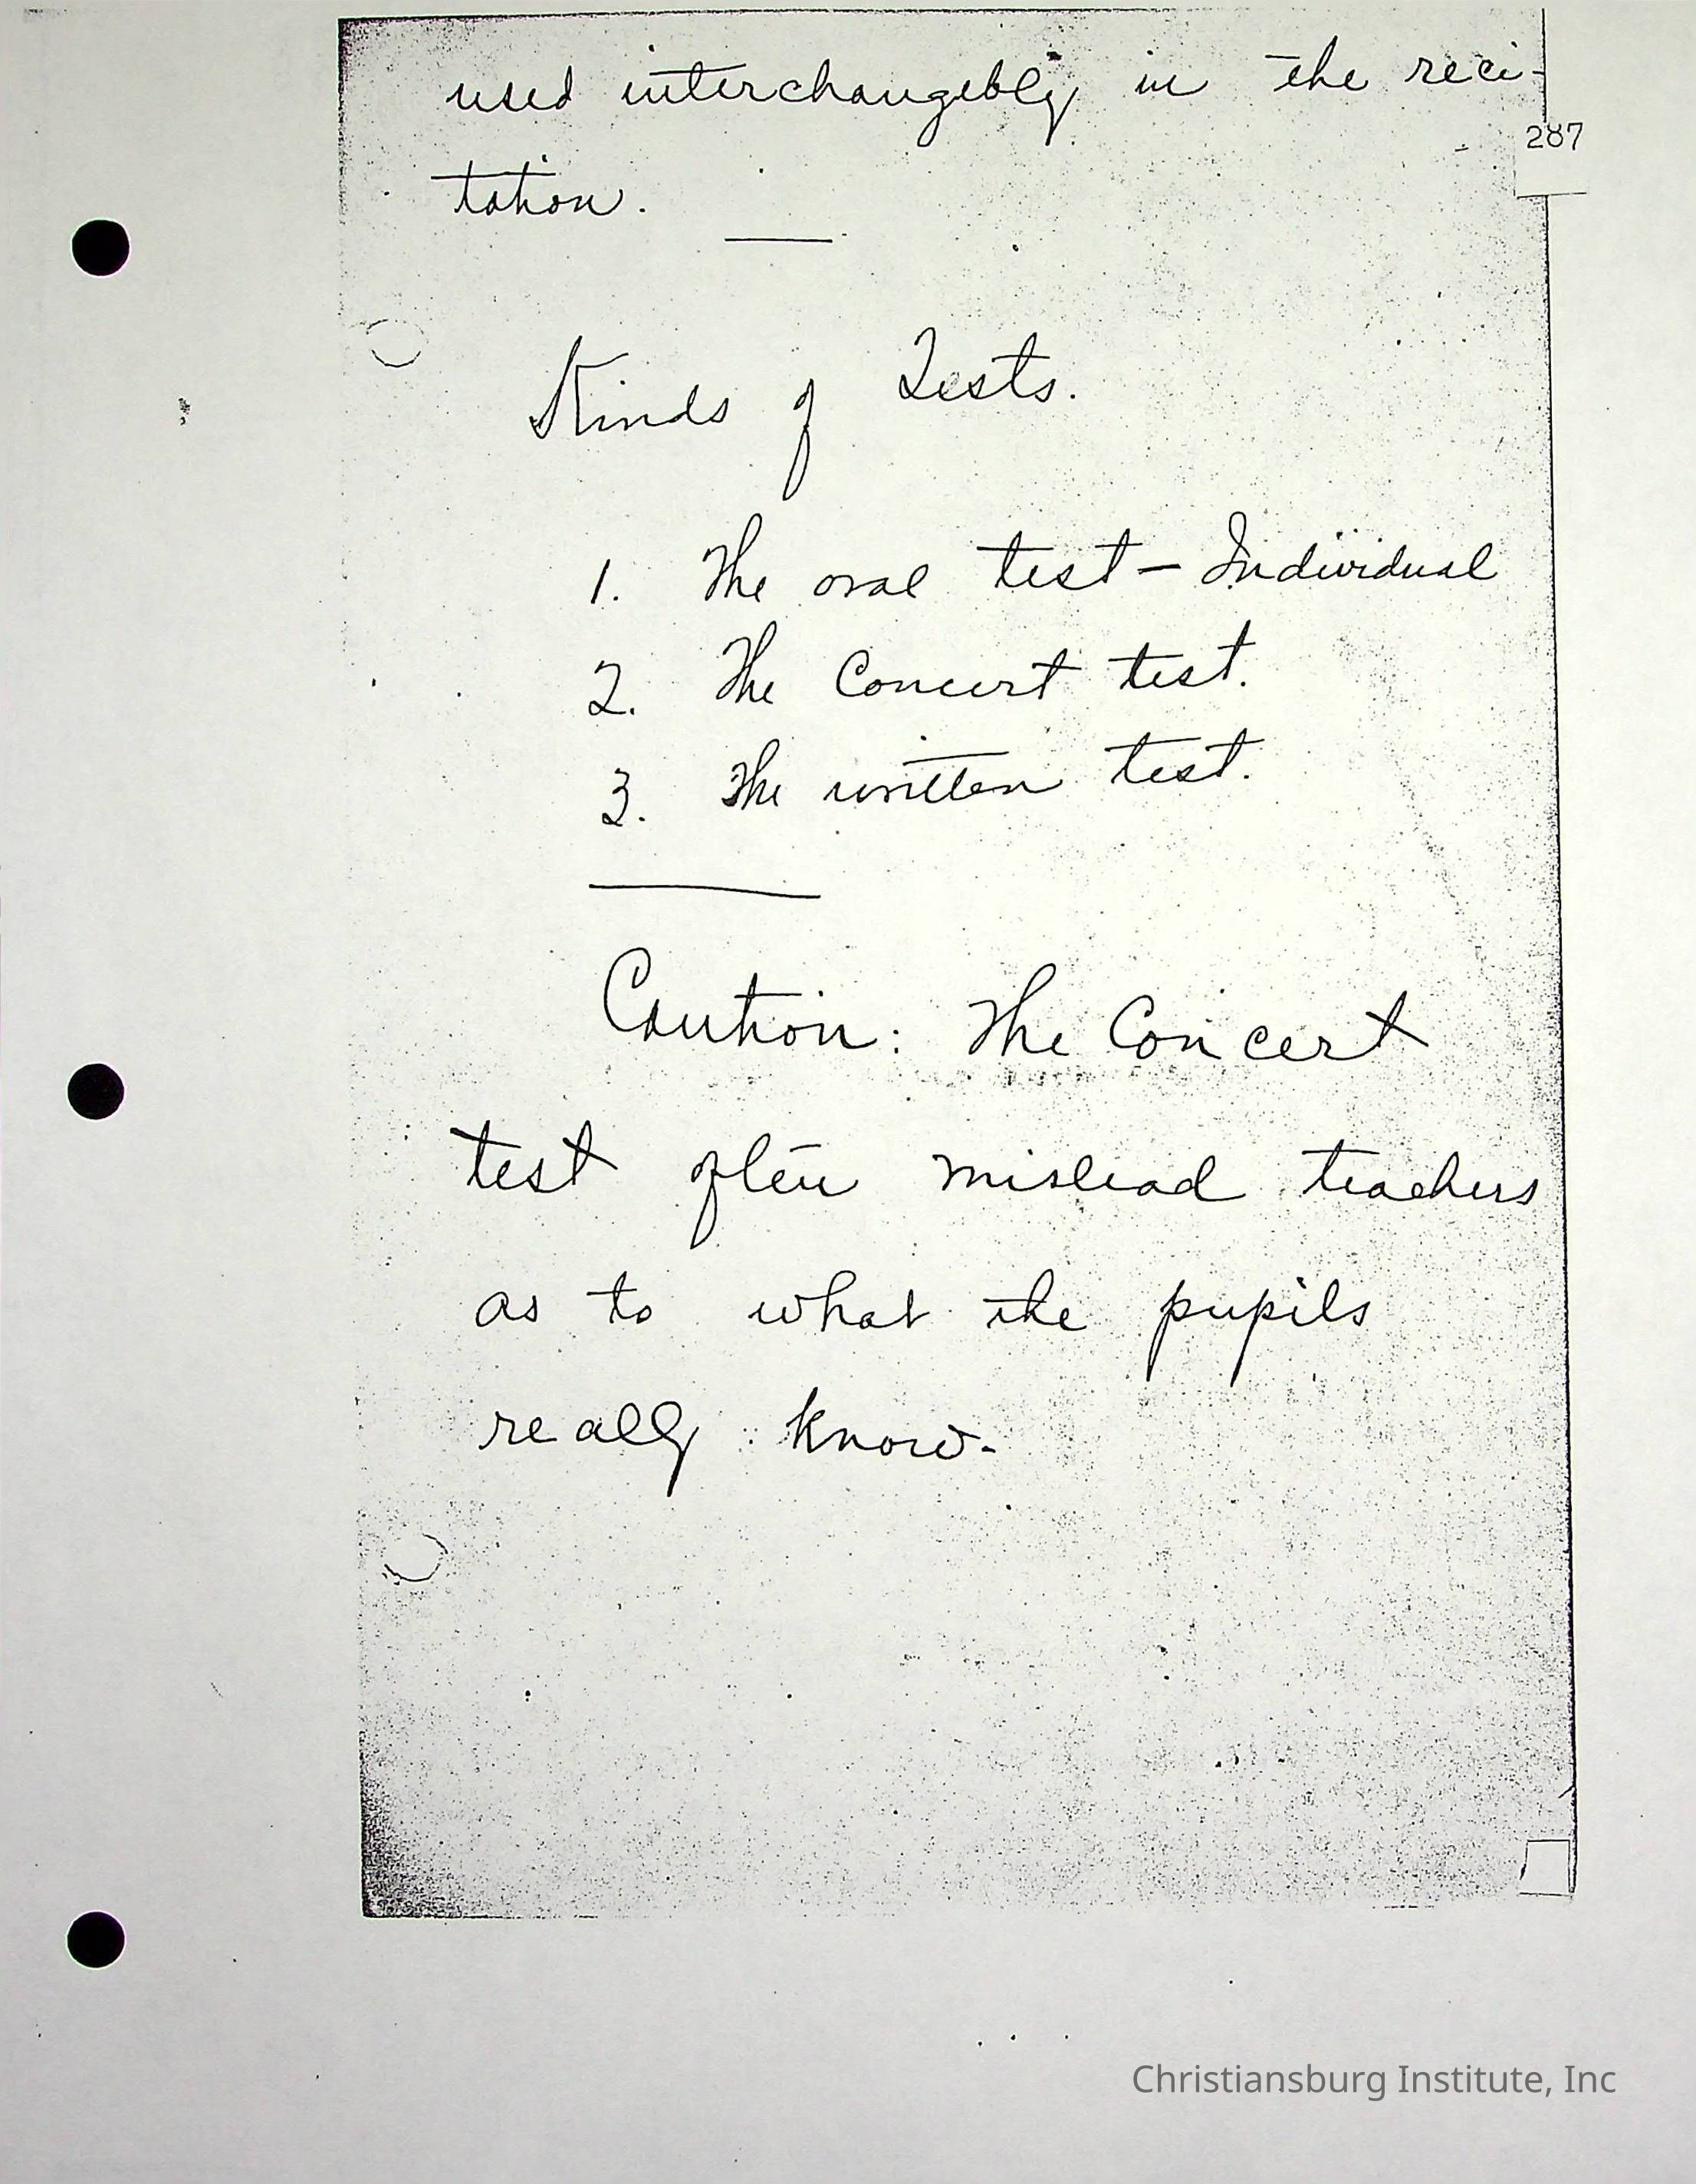 used interchangebly in the reci-
287
tation.
Kinds of Tests.
1. The oral test — Individual
2. The Concert test.
3. The written test.
Caution: The Concert
test often mislead teachers
as to what the pupils
really know.
Christiansburg Institute, Inc